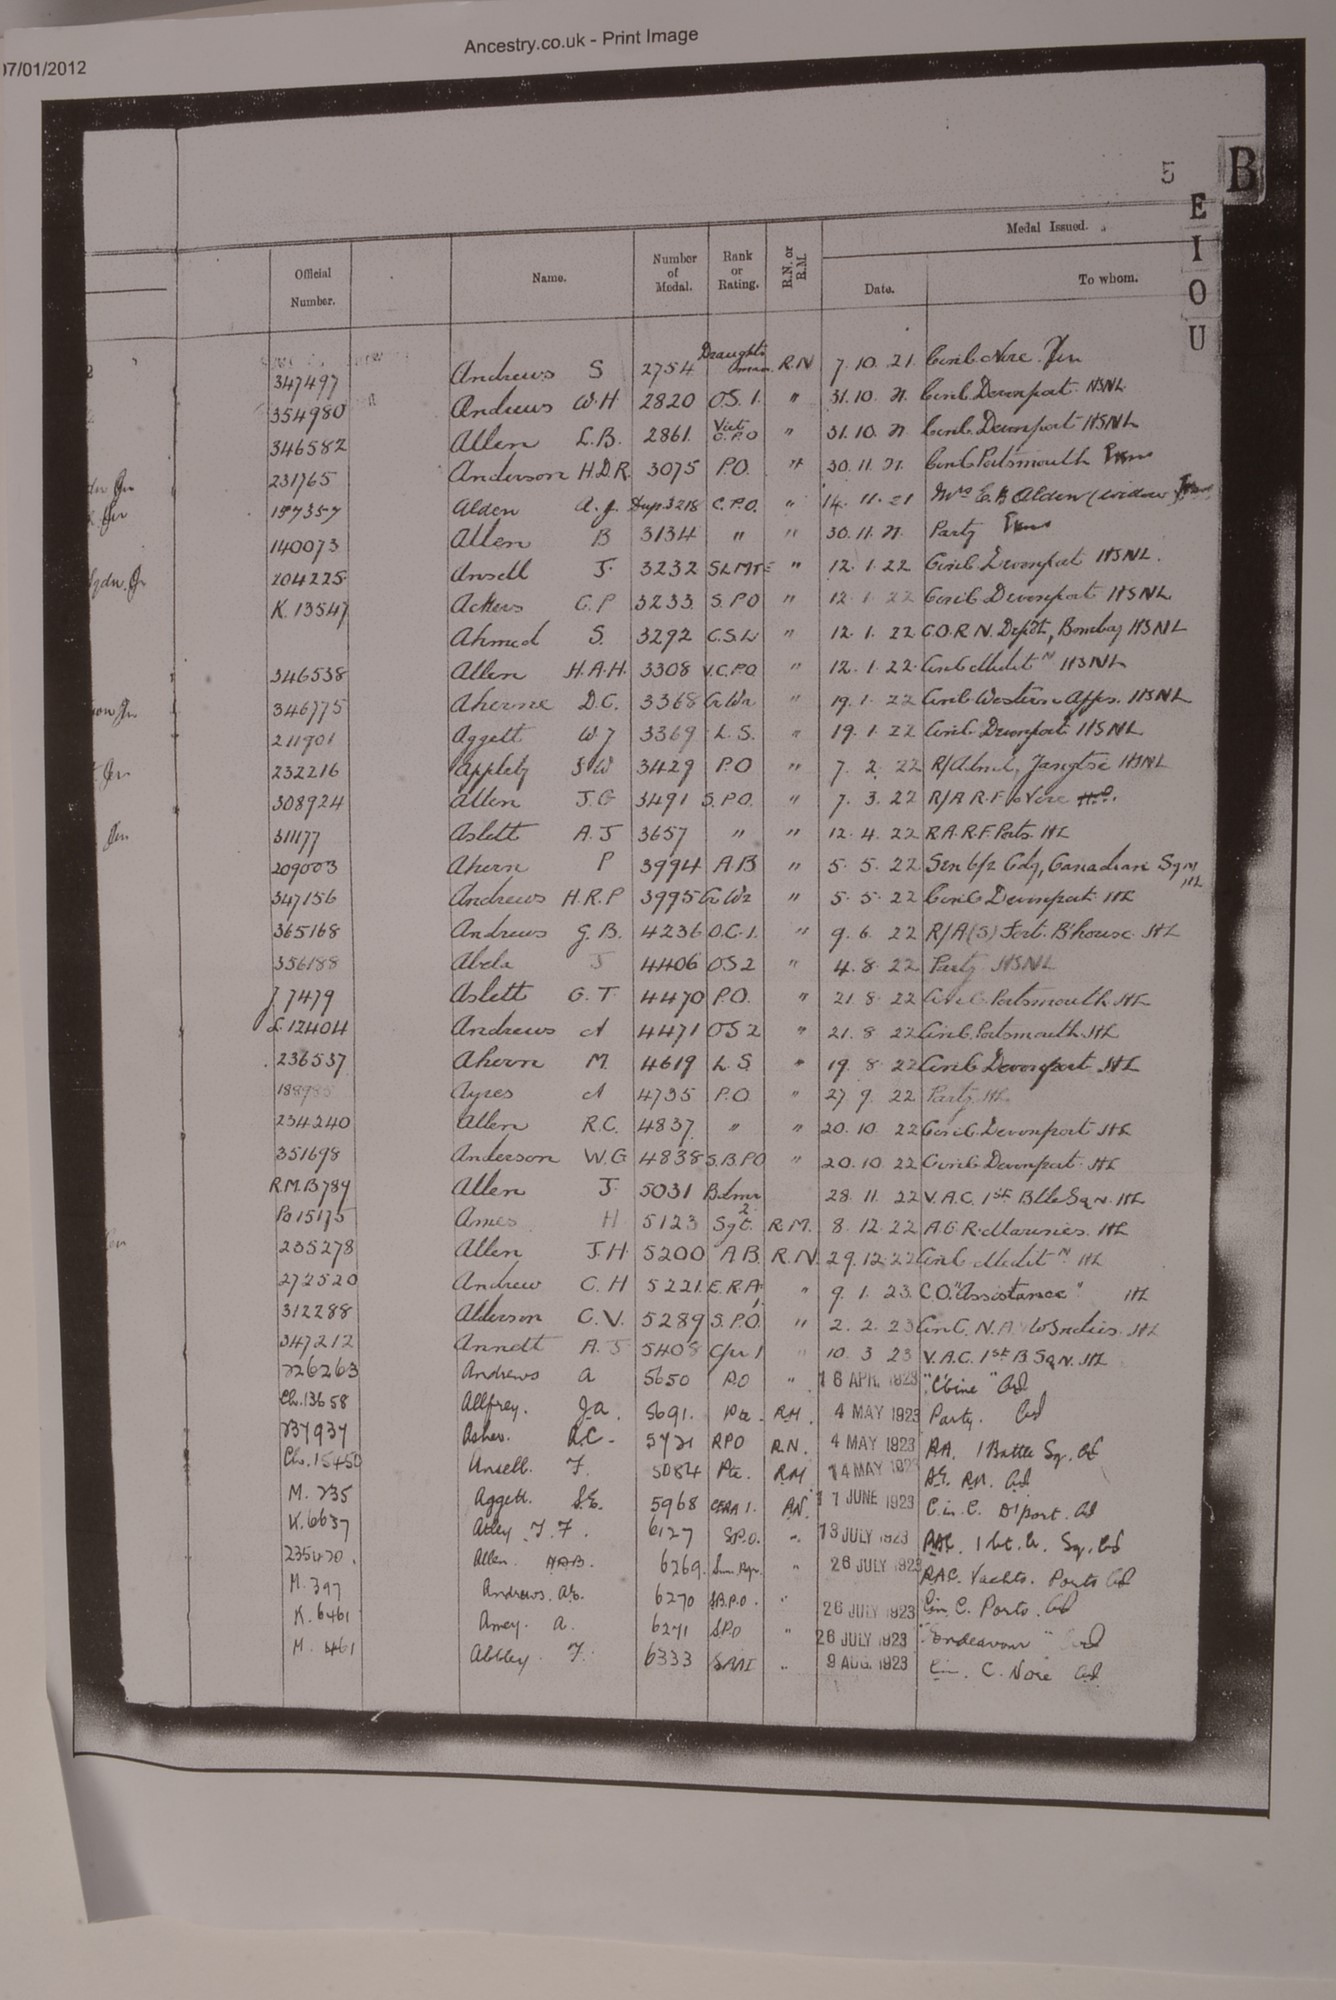 07/01/2012
Ancestry.co.uk - Print Image
5 B
E
I
O
U
Official Number. Name. Number of Medal. Rank or Rating. R.N. or R.M. Medal Issued.
Date. To whom.
347497 Andrews S 2754 Draughtsman R.N 7.10.21. CinC Nore
354980 Andrews W.H 2820 O.S.1. " 31.10.21. CinC Devonport HSNL
346582 Allen L.B. 2861 Vict C.P.O " 31.10.21 CinC Devonport HSNL
231765 Anderson H.D.R. 3075 P.O. " 30.11.21. CinC Portsmouth
157357 Alden A.J. Dup. 3218 C.P.O. " 14.11.21 Mrs E.B Alden (widow)
140073 Allen B 3134 " " 30.11.21. Party
204225 Ansell J. 3232 SLMTE " 12.1.22 CinC Devonport HSNL.
K.13547 Ackers C.P 3233 S.P.O " 12.1.22 CinC Devonport HSNL
Ahmed S. 3292 C.S.L. " 12.1.22 C.O.R.N. Depôt, Bombay HSNL
346538 Allen H.A.H. 3308 V.C.P.O " 12.1.22 CinC Meditn HSNL
346775 Aherne D.C. 3368 " 19.1.22 CinC Western Appr. HSNL
211901 Aggett W J 3369 L.S. " 19.1.22 CinC Devonport HSNL
232216 Appleby S W 3429 P.O " 7.2.22 R/Adml, Yangtse HSNL
308924 Allen J.G 3491 S.P.O. " 7.3.22 R/A R.F.
311177 Aslett A.J 3657 " " 12.4.22 R.A.R.F. Ports. HL
209003 Ahern P 3994 A.B " 5.5.22 Sen Canadian Sqn HL
347156 Andrews H.R.P 3995 " 5.5.22 CinC Devonport HL
365168 Andrews G.B. 4236 O.C.1. " 9.6.22 R/A(S) Fort B'house HL
356188 Abela J 4406 OS2 " 4.8.22 Party HSNL
J 7479 Aslett G.T 4470 P.O. " 21.8.22 CinC Portsmouth HL
L.12404 Andrews A 4471 OS2 " 21.8.22 CinC Portsmouth HL
236537 Ahern M. 4619 L.S. " 19.8.22 CinC Devonport HL
Ayres A 4735 P.O. " 27.9.22 Party HL
234240 Allen R.C. 4837 " " 20.10.22 CinC Devonport HL
351698 Anderson W.G 4838 S.B.P.O " 20.10.22 CinC Devonport HL
R.M.B 789 Allen J. 5031 Bdmr 28.11.22 V.A.C. 1st Btle Sqn. HL
Po 15175 Ames H 5123 Sgt. R.M. 8.12.22 A.G.R. Marines. HL
235278 Allen J.H. 5200 A.B. R.N. 29.12.22 CinC Meditn HL
272520 Andrew C.H 5221 E.R.A 1 " 9.1.23 C.O. "Assistance" HL
312288 Alderson C.V. 5289 S.P.O. " 2.2.23 CinC. N.A. W Indies. HL
347212 Annett A.J 5408 " 10.3.23 V.A.C. 1st B Sqn. HL
226263 Andrews A 5650 P.O " 16 APR. 1923
Ch.13658 Allfrey. J.A. 5691. Pte. R.M. 4 MAY 1923 Party.
237937 Asher. A.C. 5721 RPO R.N. 4 MAY 1923 R.A. 1 Battle Sq.
Ch.15450 Ansell. F. 5084 Pte. R.M. 14 MAY 1923 A.G. R.M.
M.235 Aggett. S.E. 5968 CERA 1. R.N. 1 JUNE 1923 C. in C. D'port.
K.6637 Atley F.F. 6127 S.P.O. " 13 JULY 1923
235470. Allen. H.A.B. 6269. " 26 JULY 1923 R.A.C. Yachts. Ports
M.397 Andrews. A.E. 6270 S.B.P.O. " 26 JULY 1923 C in C. Ports.
K.6461 Amey. A. 6271 S.P.O " 26 JULY 1923 "Endeavour"
M. 461 Abbley F. 6333 " 9 AUG. 1923 C in. C. Nore